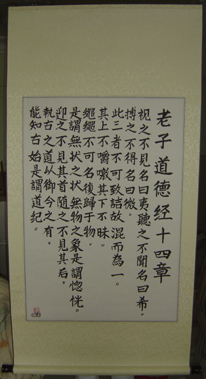 老子道德经十四章
视之不見名曰夷聽之不聞名曰希
搏之不得名曰微
此三者不可致詰故混而為一
其上不皦其下不昧
繩繩不可名復歸于物
是謂無状之状無物之象是謂惚恍
迎之不見其首随之不見其后
執古之道以御今之有
能知古始是謂道纪